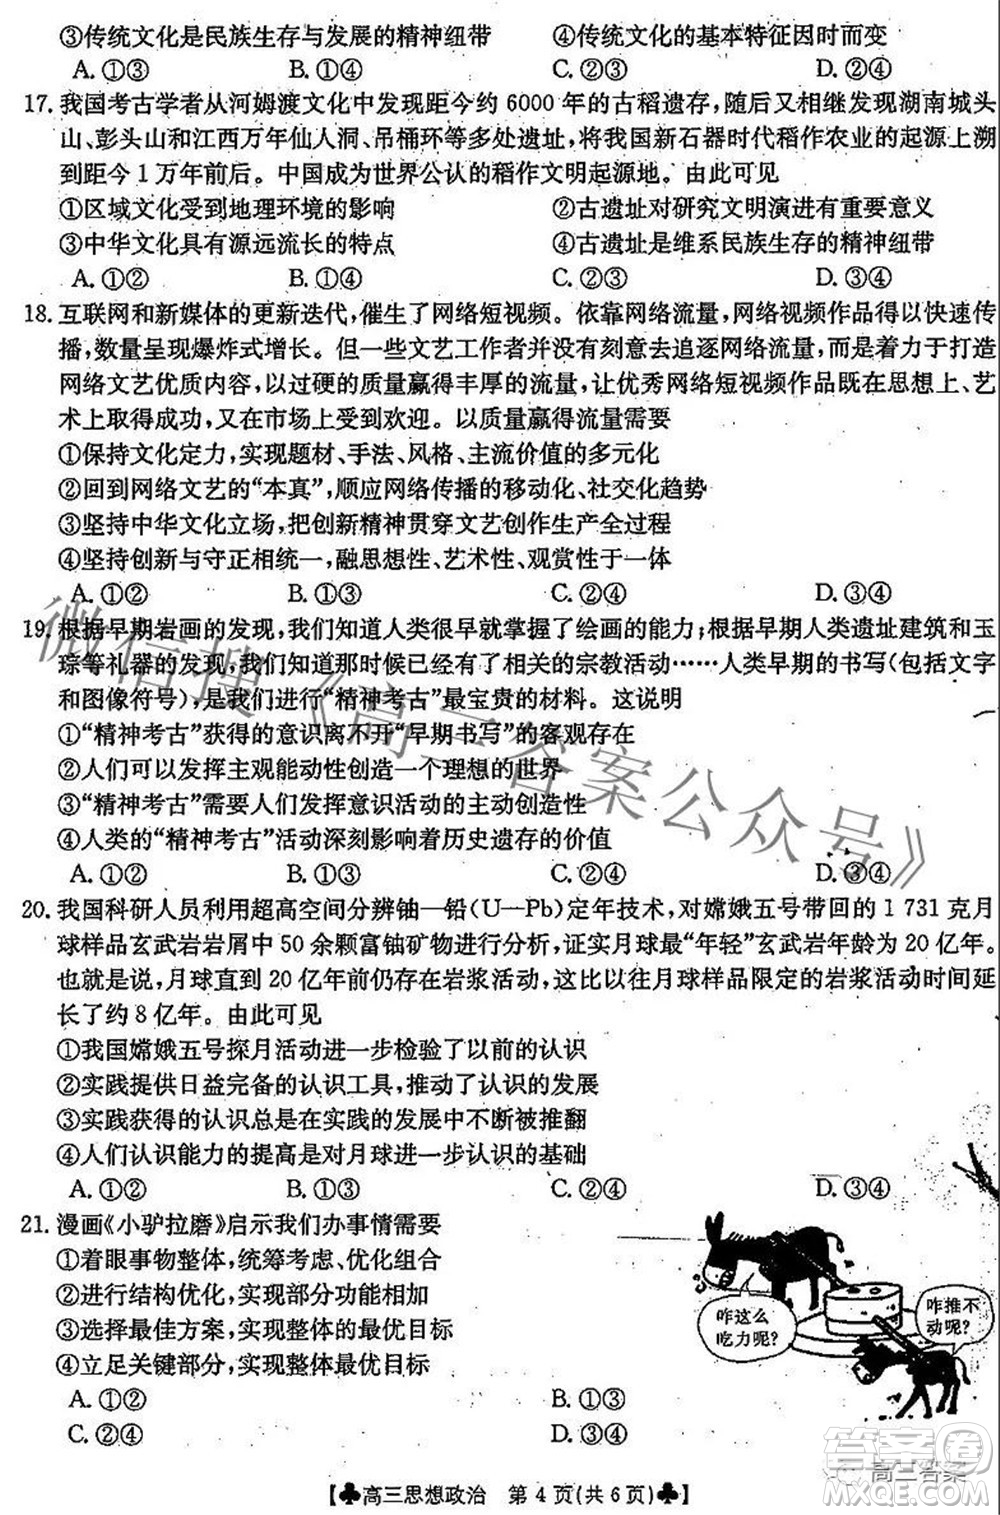 ③传统文化是民族生存与发展的精神纽带 ④传统文化的基本特征因时而变
A. ①③ B. ①④ C. ②③ D. ②④
17. 我国考古学者从河姆渡文化中发现距今约 6000 年的古稻遗存，随后又相继发现湖南城头
山、彭头山和江西万年仙人洞、吊桶环等多处遗址，将我国新石器时代稻作农业的起源上溯
到距今 1 万年前后。中国成为世界公认的稻作文明起源地。由此可见
①区域文化受到地理环境的影响 ②古遗址对研究文明演进有重要意义
③中华文化具有源远流长的特点 ④古遗址是维系民族生存的精神纽带
A. ①② B. ①④ C. ②③ D. ③④
18. 互联网和新媒体的更新迭代，催生了网络短视频。依靠网络流量，网络视频作品得以快速传
播，数量呈现爆炸式增长。但一些文艺工作者并没有刻意去追逐网络流量，而是着力于打造
网络文艺优质内容，以过硬的质量赢得丰厚的流量，让优秀网络短视频作品既在思想上、艺
术上取得成功，又在市场上受到欢迎。以质量赢得流量需要
①保持文化定力，实现题材、手法、风格、主流价值的多元化
②回到网络文艺的“本真”，顺应网络传播的移动化、社交化趋势
③坚持中华文化立场，把创新精神贯穿文艺创作生产全过程
④坚持创新与守正相统一，融思想性、艺术性、观赏性于一体
A. ①② B. ①③ C. ②④ D. ③④
19. 根据早期岩画的发现，我们知道人类很早就掌握了绘画的能力；根据早期人类遗址建筑和玉
琮等礼器的发现，我们看到了相关的宗教活动……人类早期的书写（包括文字
和图像符号），是我们进行“精神考古”最宝贵的材料。这说明
①“精神考古”获得的意识离不开“早期书写”的客观存在
②人们可以发挥主观能动性创造一个理想的世界
③“精神考古”需要人们发挥意识活动的主动创造性
④人类的“精神考古”活动深刻影响着历史遗存的价值
A. ①② B. ①③ C. ②④ D. ③④
20. 我国科研人员利用超高空间分辨铀—铅(U—Pb)定年技术，对嫦娥五号带回的 1 731 克月
球样品玄武岩岩屑中 50 余颗富铀矿物进行分析，证实月球最“年轻”玄武岩年龄为 20 亿年。
也就是说，月球直到 20 亿年前仍存在岩浆活动，这比以往月球样品限定的岩浆活动时间延
长了约 8 亿年。由此可见
①我国嫦娥五号探月活动进一步检验了以前的认识
②实践提供日益完备的认识工具，推动了认识的发展
③实践获得的认识总是在实践的发展中不断被推翻
④人们认识能力的提高是对月球进一步认识的基础
A. ①② B. ①③ C. ②④ D. ③④
21. 漫画《小驴拉磨》启示我们办事情需要
①着眼事物整体，统筹考虑、优化组合
②进行结构优化，实现部分功能相加
③选择最佳方案，实现整体的最优目标
④立足关键部分，实现整体最优目标
A. ①② B. ①③
C. ②④ D. ③④
咋这么
吃力呢？
咋推不
动呢？
【♣高三思想政治 第 4 页(共 6 页)♣】
微信搜《高三答案公众号》
高三答案
答案圈